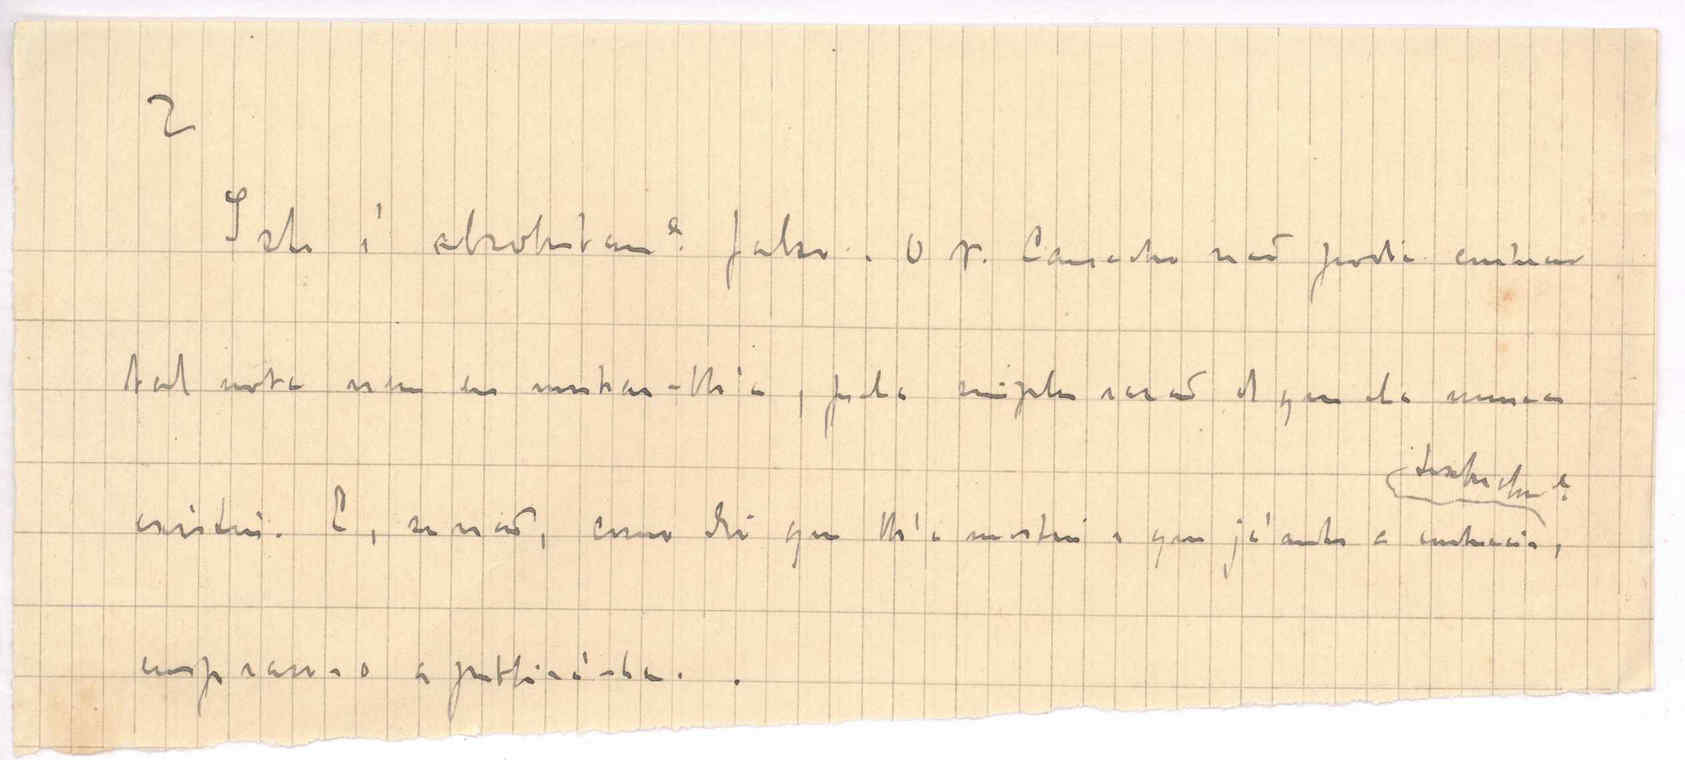 2
Isto é absolutam.e falso. O sr. Camacho não podia ensinar
tal nota nem eu mostrar-lh'a, pela simples razão de que ela nunca
existiu. E, se não, como diz que lh'a mostrei e que já antes a conhecia,
textualm.e
emprazo-o a publicá-la.